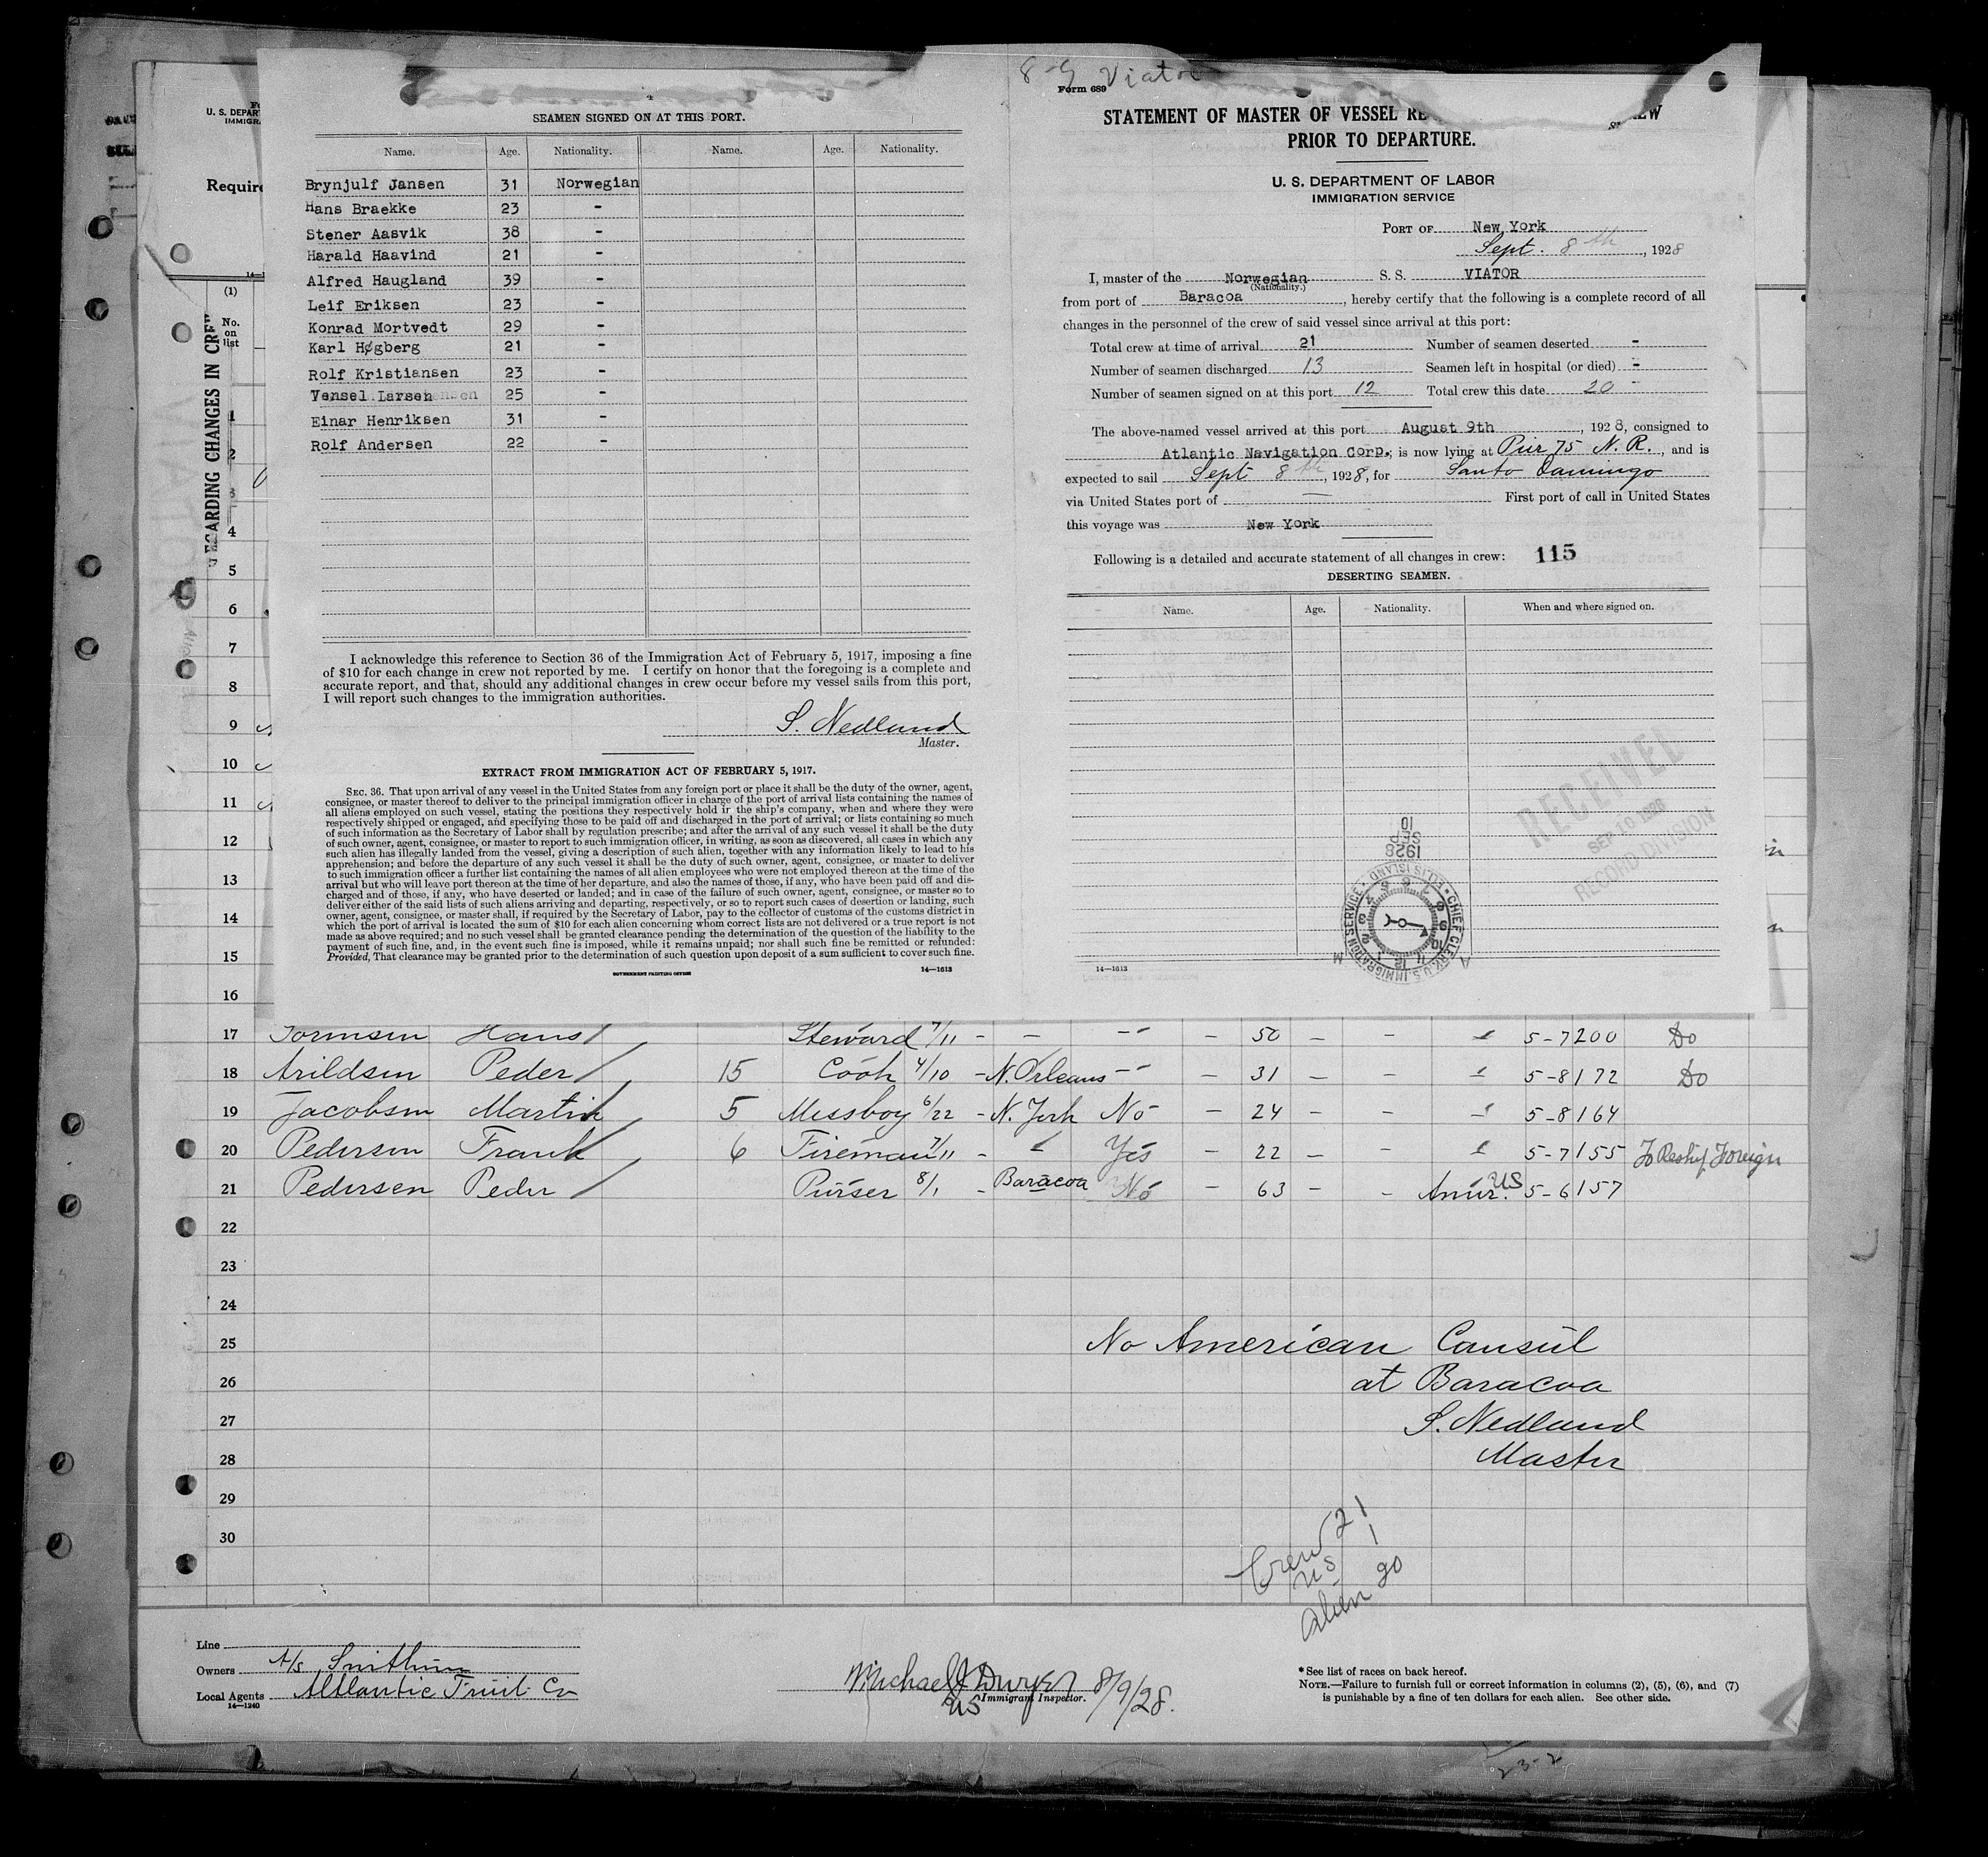 8-9 Viator
4
SEAMEN SIGNED ON AT THIS PORT.
Name. Age. Nationality. Name. Age. Nationality.
Brynjulf Jansen 31 Norwegian
Hans Braekke 23 -
Stener Aasvik 38 -
Harald Haavind 21 -
Alfred Haugland 39 -
Leif Eriksen 23 -
Konrad Mortvedt 29 -
Karl Høgberg 21 -
Rolf Kristiansen 23 -
Larsen 25 -
Einar Henriksen 31 -
Rolf Andersen 22 -
I acknowledge this reference to Section 36 of the Immigration Act of February 5, 1917, imposing a fine
of $10 for each change in crew not reported by me. I certify on honor that the foregoing is a complete and
accurate report, and that, should any additional changes in crew occur before my vessel sails from this port,
I will report such changes to the immigration authorities.
S. Nedland
Master.
EXTRACT FROM IMMIGRATION ACT OF FEBRUARY 5, 1917.
SEC. 36. That upon arrival of any vessel in the United States from any foreign port or place it shall be the duty of the owner, agent,
consignee, or master thereof to deliver to the principal immigration officer in charge of the port of arrival lists containing the names of
all aliens employed on such vessel, stating the positions they respectively hold in the ship's company, when and where they were
respectively shipped or engaged, and specifying those to be paid off and discharged in the port of arrival; or lists containing so much
of such information as the Secretary of Labor shall by regulation prescribe; and after the arrival of any such vessel it shall be the duty
of such owner, agent, consignee, or master to report to such immigration officer, in writing, as soon as discovered, all cases in which any
such alien has illegally landed from the vessel, giving a description of such alien, together with any information likely to lead to his
apprehension; and before the departure of any such vessel it shall be the duty of such owner, agent, consignee, or master to deliver
to such immigration officer a further list containing the names of all alien employees who were not employed thereon at the time of the
arrival but who will leave port thereon at the time of her departure, and also the names of those, if any, who have been paid off and dis-
charged and of those, if any, who have deserted or landed; and in case of the failure of such owner, agent, consignee, or master so to
deliver either of the said lists of such aliens arriving and departing, respectively, or so to report such cases of desertion or landing, such
owner, agent, consignee, or master shall, if required by the Secretary of Labor, pay to the collector of customs of the customs district in
which the port of arrival is located the sum of $10 for each alien concerning whom correct lists are not delivered or a true report is not
made as above required; and no such vessel shall be granted clearance pending the determination of the question of the liability to the
payment of such fine, and, in the event such fine is imposed, while it remains unpaid; nor shall such fine be remitted or refunded:
Provided, That clearance may be granted prior to the determination of such question upon deposit of a sum sufficient to cover such fine.
GOVERNMENT PRINTING OFFICE 14—1613
Form 689
STATEMENT OF MASTER OF VESSEL RE
PRIOR TO DEPARTURE.
U. S. DEPARTMENT OF LABOR
IMMIGRATION SERVICE
PORT OF New York
Sept. 8th, 1928
I, master of the Norwegian S. S. VIATOR
(Nationality.)
from port of Baracoa, hereby certify that the following is a complete record of all
changes in the personnel of the crew of said vessel since arrival at this port:
Total crew at time of arrival 21 Number of seamen deserted -
Number of seamen discharged 13 Seamen left in hospital (or died) -
Number of seamen signed on at this port 12 Total crew this date 20
The above-named vessel arrived at this port August 9th, 1928, consigned to
Atlantic Navigation Corp.; is now lying at Pier 75 N. R., and is
expected to sail Sept 8th, 1928, for Santo Domingo
via United States port of — First port of call in United States
this voyage was New York
Following is a detailed and accurate statement of all changes in crew: 115
DESERTING SEAMEN.
Name. Age. Nationality. When and where signed on.
RECEIVED
SEP 10 1928
RECORD DIVISION
1928
SEP
10
CHIEF CLERK, U.S. IMMIGRATION SERVICE ELLIS ISLAND
14—1613
U. S. DEPAR
IMMIGRA
Require
EGARDING CHANGES IN CREW
(1)
No.
on
list
1
2
3
4
5
6
7
8
9
10
11
12
13
14
15
16
17 Hans Steward 7/11 - - -" - 50 - - 5-7 200 Do
18 Arildsen Peder 15 Cook 4/10 - N. Orleans -" - 31 - - 5-8 172 Do
19 Jacobsen Martin 5 Messboy 6/22 - N. York No - 24 - - 5-8 164
20 Pedersen Frank 6 Fireman 7/11 - Yes - 22 - - 5-7 155 To Reship Foreign
21 Pedersen Peder Purser 8/1 - Baracoa No - 63 - - Amer. US 5-6 157
22
23
24
25 No American Consul
26 at Baracoa
27 S. Nedland
28 Master
29
30
Crew 21
US 1
Alien 20
Line
Owners A/s
Local Agents Atlantic Fruit Co
14—1240
Michael J Dwyer 8/9/28.
US Immigrant Inspector.
* See list of races on back hereof.
NOTE.—Failure to furnish full or correct information in columns (2), (5), (6), and (7)
is punishable by a fine of ten dollars for each alien. See other side.
23-2